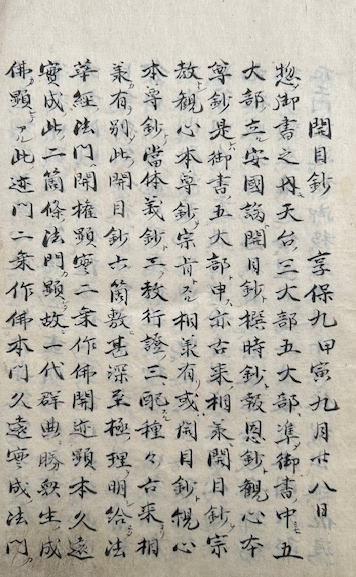 開目鈔 享保九甲寅九月廿八日
惣御書之内天台三大部五大部准御書中五
大部立安國論開目鈔撰時鈔報恩鈔観心本
尊鈔是御書五大部申亦古来相承開目鈔宗
教観心本尊鈔宗旨云相承有或開目鈔観心
本尊鈔當体義鈔三教行證三配種々古来相
承有別此開目鈔六箇敷甚深至極理明給法
華経法門開権顕實二乗作佛開迹顕本久遠
實成此二箇條法門顕故一代群典勝衆生成
佛顕云此迹門二乗作佛本門久遠實成法門